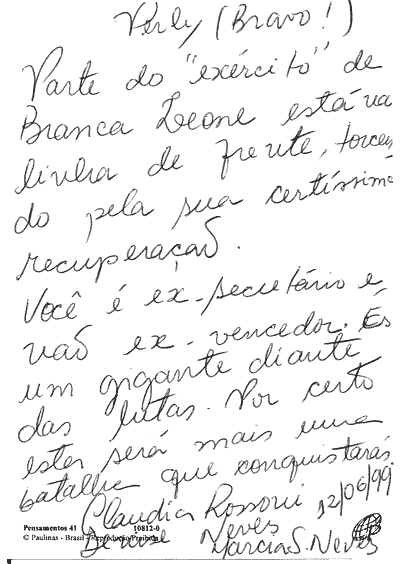 Verly (Bravo!)
Parte do "exército" de
Branca Leone está na
linha de frente, torcen
do pela sua certíssima
recuperação.
Você é ex-secretário e
não ex-vencedor. És
um gigante diante
das lutas. Por certo
esta será mais uma
batalha que conquistarás.
Claudia Rossoni 12/06/99
Denise Neves
Marcia S. Neves
Pensamentos 41 10812-0
© Paulinas - Brasil - Reprodução Proibida